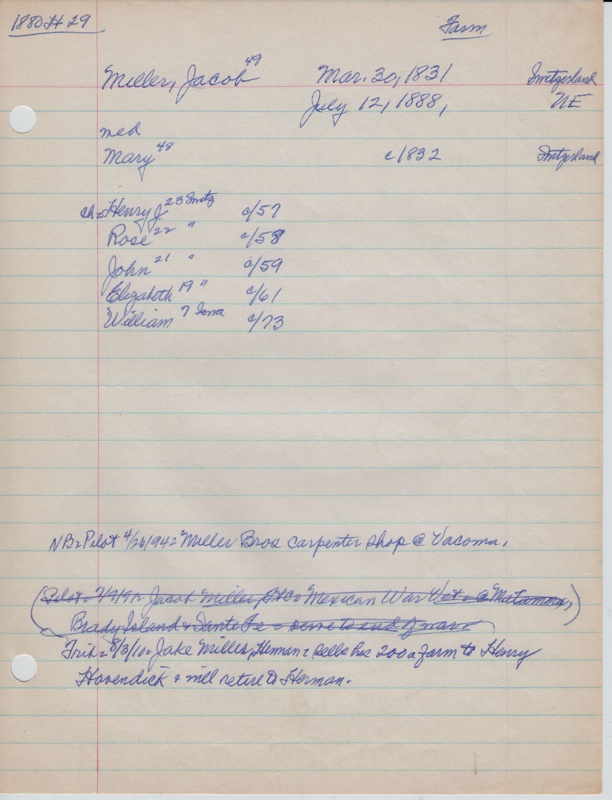 1880 H 29 Farm
Miller, Jacob 49 Mar. 30, 1831 Switzerland
July 12, 1888, NE
med
Mary 48 c/1832 Switzerland
ch = Henry J 23 Switz c/57
Rose 22 " c/58
John 21 " c/59
Elizabeth 19 " c/61
William 7 Iowa c/73
NB = Pilot 4/26/94 = Miller Bros carpenter shop @ Vacoma.
(Pilot = Jacob Miller, = Mexican War Vet = @ Matamoras,
Brady Island & Santa Fe = serve to end of war)
8/3/11 = Jake Miller, Herman = sells his 200 a farm to Henry
Hovendick & will retire to Herman.